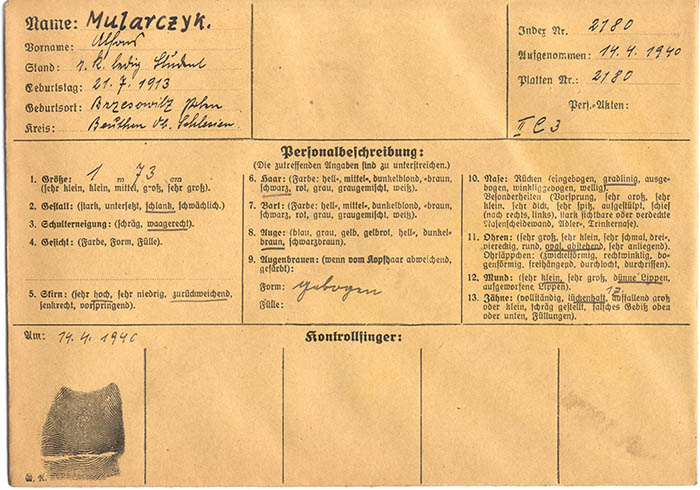 Name: Mularczyk.
Vorname: Alfons
Stand: r. k. ledig Student
Geburtstag: 21. 7. 1913
Geburtsort: Brzesowitz
Kreis: Beuthen Ob. Schlesien
Index Nr. 2180
Aufgenommen: 14. 4. 1940
Platten Nr.: 2180
Pers.-Akten:
II C 3
Personalbeschreibung:
(Die zutreffenden Angaben sind zu unterstreichen.)
1. Größe: 1 m 73 cm
(sehr klein, klein, mittel, groß, sehr groß).
2. Gestalt: (stark, untersetzt, schlank, schwächlich.)
3. Schulterneigung: (schräg, waagerecht).
4. Gesicht: (Farbe, Form, Fülle).
5. Stirn: (sehr hoch, sehr niedrig, zurückweichend,
senkrecht, vorspringend).
6. Haar: (Farbe: hell-, mittel-, dunkelblond, -braun,
schwarz, rot, grau, graugemischt, weiß).
7. Bart: (Farbe: hell-, mittel-, dunkelblond, -braun,
schwarz, rot, grau, graugemischt, weiß).
8. Auge: (blau, grau, gelb, gelbrot, hell-, dunkel-
braun, schwarzbraun).
9. Augenbrauen: (wenn vom Kopfhaar abweichend,
gefärbt):
Form: gebogen
Fülle:
10. Nase: Rücken (eingebogen, gradlinig, ausge-
bogen, winkliggebogen, wellig).
Besonderheiten (Vorsprung, sehr groß, sehr
klein, sehr dick, sehr spitz, aufgestülpt, schief
(nach rechts, links), stark sichtbare oder verdeckte
Nasenscheidewand, Adler-, Trinkernase).
11. Ohren: (sehr groß, sehr klein, sehr schmal, drei-,
viereckig, rund, oval, abstehend, sehr anliegend).
Ohrläppchen: (zwickelförmig, rechtwinklig, bo-
genförmig, freihängend, durchlocht, durchrissen).
12. Mund: (sehr klein, sehr groß, dünne Lippen,
aufgeworfene Lippen).
13. Zähne: (vollständig, lückenhaft, auffallend groß
oder klein, schräg gestellt, falsches Gebiß oben
oder unten, Füllungen).
Am: 14. 4. 1940
Kontrollfinger: